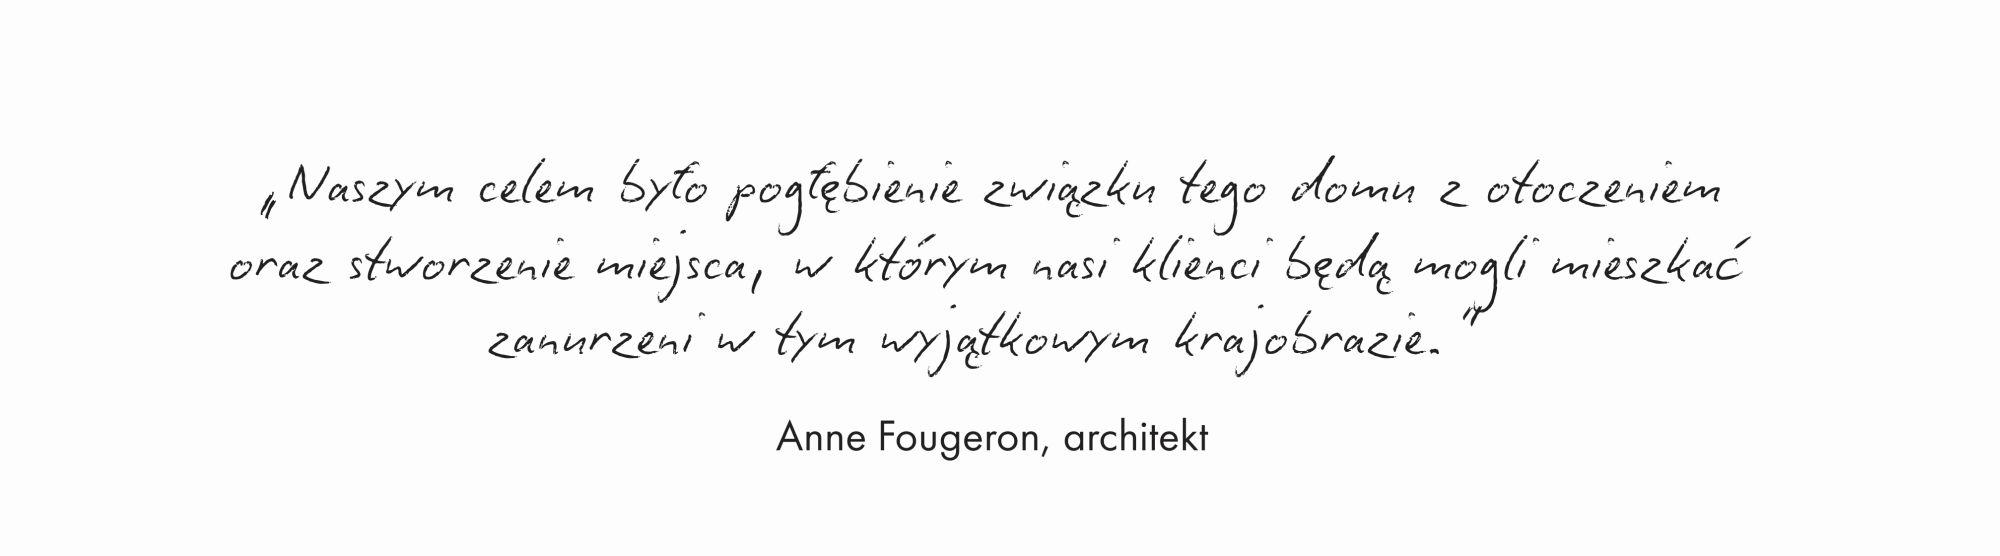 „Naszym celem było pogłębienie związku tego domu z otoczeniem
oraz stworzenie miejsca, w którym nasi klienci będą mogli mieszkać
zanurzeni w tym wyjątkowym krajobrazie.”
Anne Fougeron, architekt